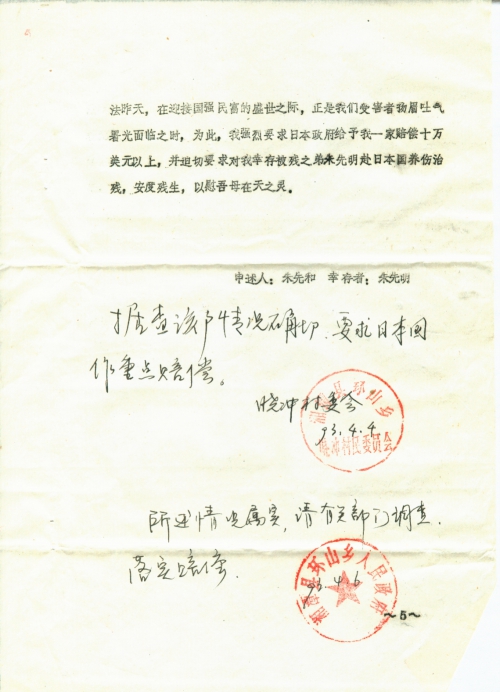 法昨天，在迎接国强民富的盛世之际，正是我们受害者扬眉吐气
署光面临之时，为此，我强烈要求日本政府给予我一家赔偿十万
美元以上，并迫切要求对我幸存被残之弟朱先明赴日本国养伤治
残，安度残生，以慰吾母在天之灵。
申述人：朱先和 幸存者：朱先明
据查该户情况确切、要求日本国
作重点赔偿。
县环山乡
晓冲村委会
93.4.4
晓冲村民委员会
所述情况属实，请有关部门调查.
落实赔偿.
县环山乡人民政府
93.4.6
～5～